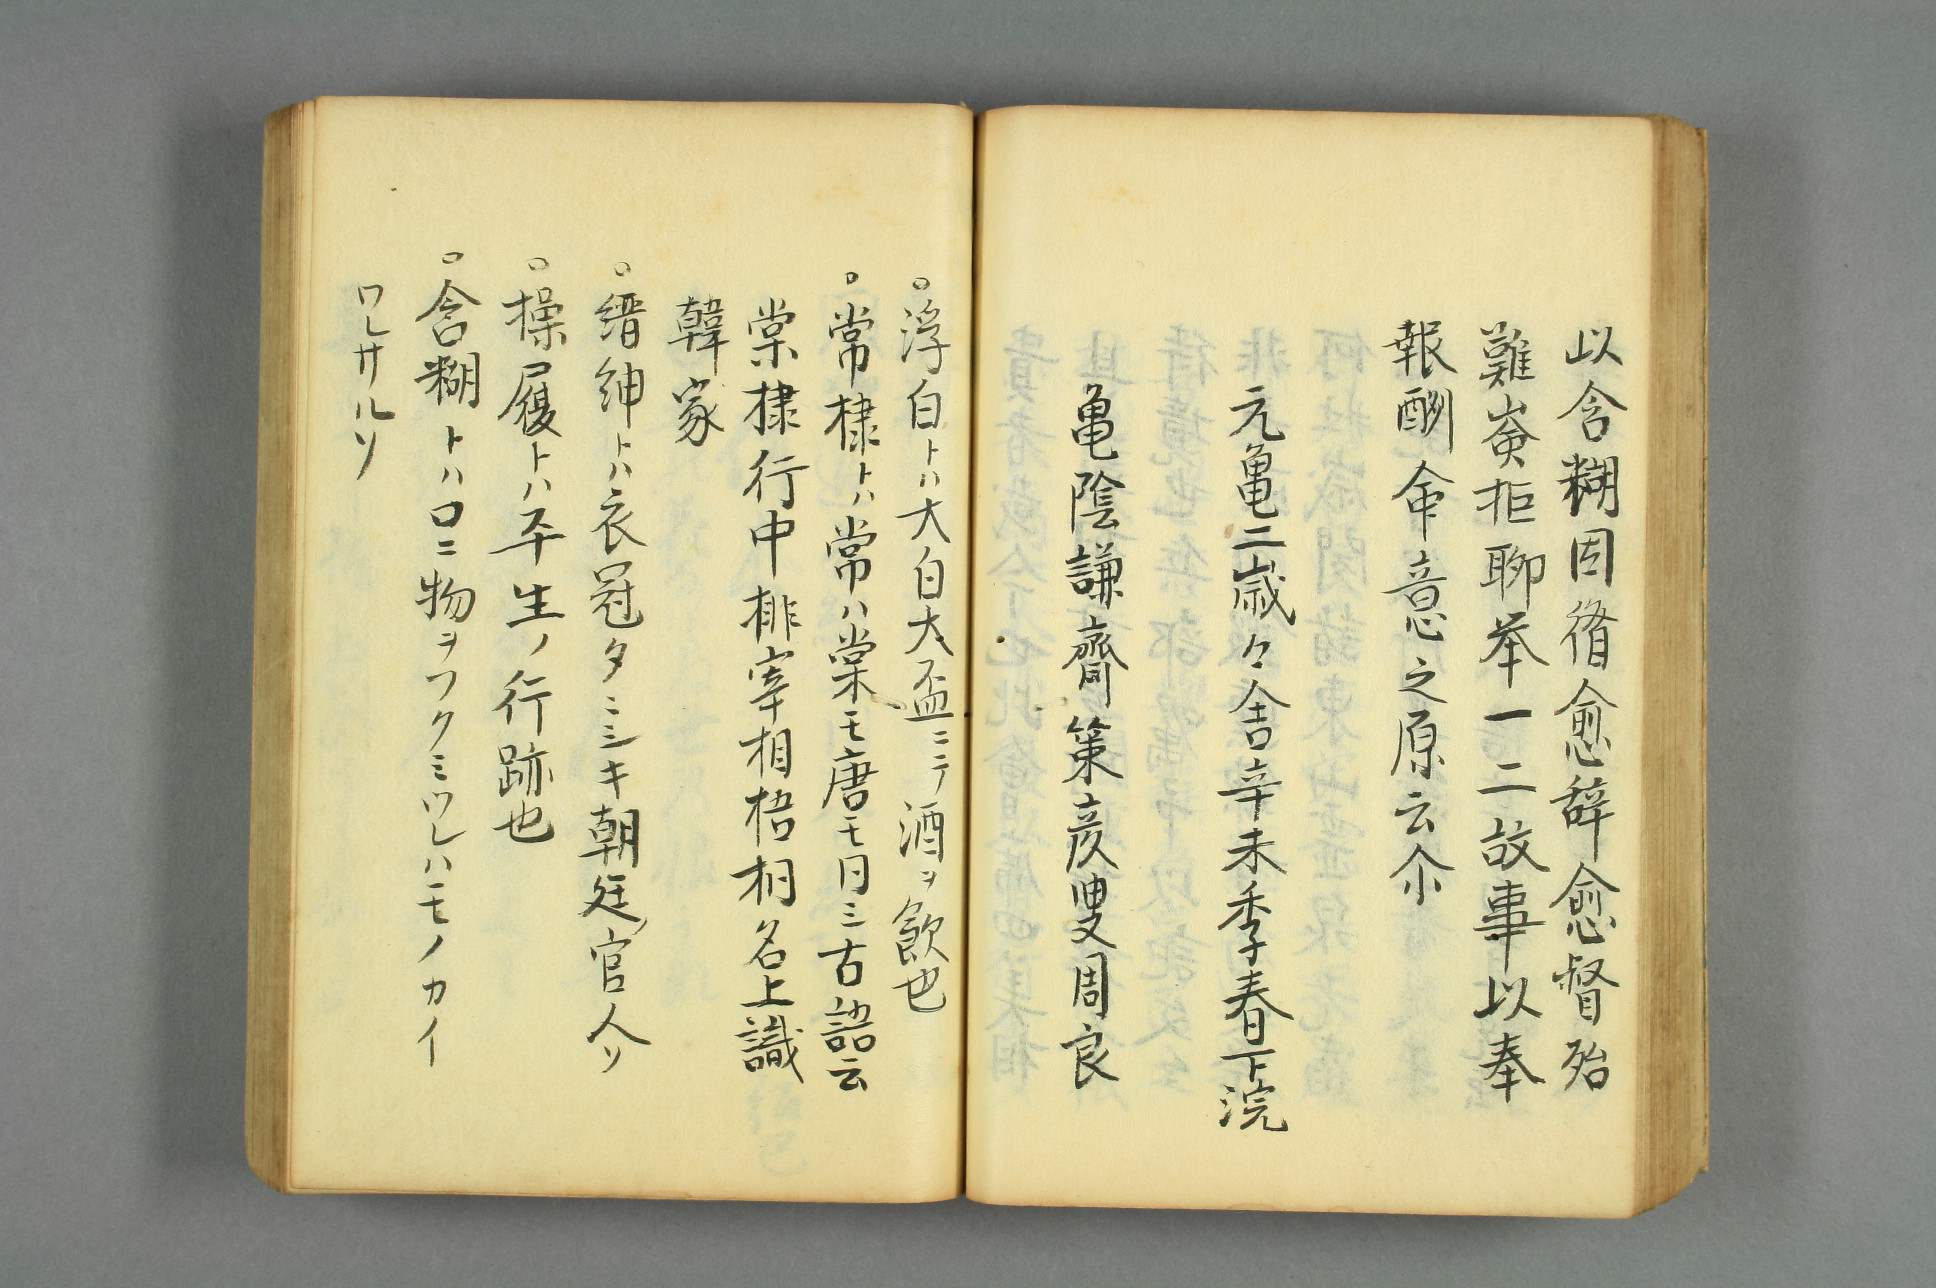 以含糊因循愈辞愈督殆
難峻拒聊挙一二故事以奉
報酬命意之原云尒
元亀二歳々舎辛未季春下浣
亀陰謙齋策彦叟周良
○浮白トハ大白大盃ニテ酒ヲ飲也
○常棣トハ常ハ棠モ唐モ同ミ古語云
棠棣行中排宰相梧桐名上識
韓家
○縉紳トハ衣冠タヽシキ朝廷官人ソ
○操履トハ平生ノ行跡也
○含糊トハ口ニ物ヲフクミツレハモノカイ
ワレサルソ